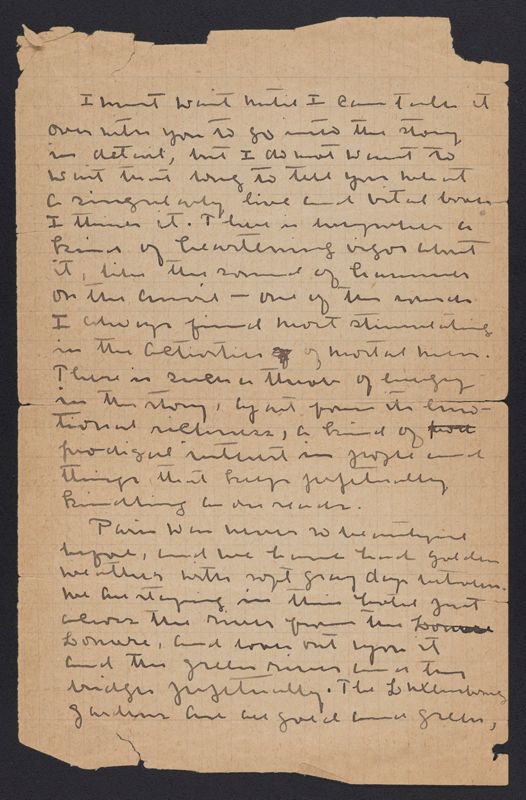 I must wait until I can talk it
over with you to go into the story
in detail, but I do not want to
wait that long to tell you what
a singularly live and vital book
I think it. There is everywhere a
kind of heartening vigor about
it, like the sound of hammers
on the anvil — one of the sounds
I always find most stimulating
in the activities of of mortal men.
There is such a throb of energy
in the story, apart from its emo-
tional richness, a kind of
prodigal interest in people and
things that keeps perpetually
kindling as one reads.
Paris was never so beautiful
before, and we have had golden
weather with soft gray days between.
We are staying in this hotel just
across the river from the Louvre
Louvre, and look out upon it
and the green river and the
bridges perpetually. The Luxembourg
gardens are all gold and green,